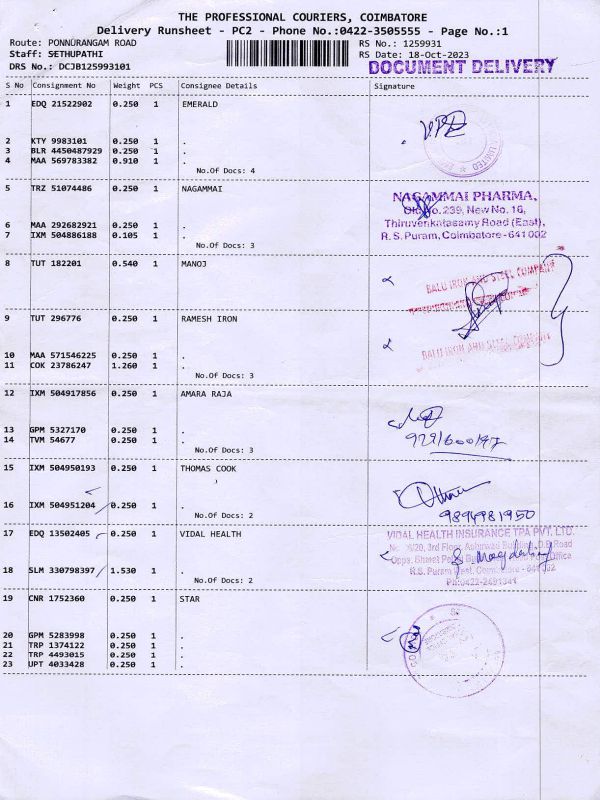 THE PROFESSIONAL COURIERS, COIMBATORE
Delivery Runsheet - PC2 - Phone No.:0422-3505555 - Page No.:1
Route: PONNURANGAM ROAD RS No.: 1259931
Staff: SETHUPATHI RS Date: 18-Oct-2023
DRS No.: DCJB125993101 DOCUMENT DELIVERY
S No Consignment No Weight PCS Consignee Details Signature
1 EDQ 21522902 0.250 1 EMERALD
2 KTY 9983101 0.250 1 .
3 BLR 4450487929 0.250 1 .
4 MAA 569783382 0.910 1 .
No.Of Docs: 4
5 TRZ 51074486 0.250 1 NAGAMMAI
NAGAMMAI PHARMA,
Old No. 239, New No. 16,
Thiruvenkatasamy Road (East),
R.S. Puram, Coimbatore - 641 002
6 MAA 292682921 0.250 1 .
7 IXM 504886188 0.105 1 .
No.Of Docs: 3
8 TUT 182201 0.540 1 MANOJ
BALU IRON AND STEEL COMPANY
9 TUT 296776 0.250 1 RAMESH IRON
BALU IRON AND STEEL COMPANY
10 MAA 571546225 0.250 1 .
11 COK 23786247 1.260 1 .
No.Of Docs: 3
12 IXM 504917856 0.250 1 AMARA RAJA
13 GPM 5327170 0.250 1 .
14 TVM 54677 0.250 1 .
No.Of Docs: 3
15 IXM 504950193 0.250 1 THOMAS COOK
16 IXM 504951204 0.250 1 .
9894981950
No.Of Docs: 2
17 EDQ 13502405 0.250 1 VIDAL HEALTH
VIDAL HEALTH INSURANCE TPA PVT. LTD.
3rd Floor, Road
Office
R.S. Puram West, Coimbatore - 641 002
Ph:0422-2491341
18 SLM 330798397 1.530 1 .
No.Of Docs: 2
19 CNR 1752360 0.250 1 STAR
20 GPM 5283998 0.250 1 .
21 TRP 1374122 0.250 1 .
22 TRP 4493015 0.250 1 .
23 UPT 4033428 0.250 1 .